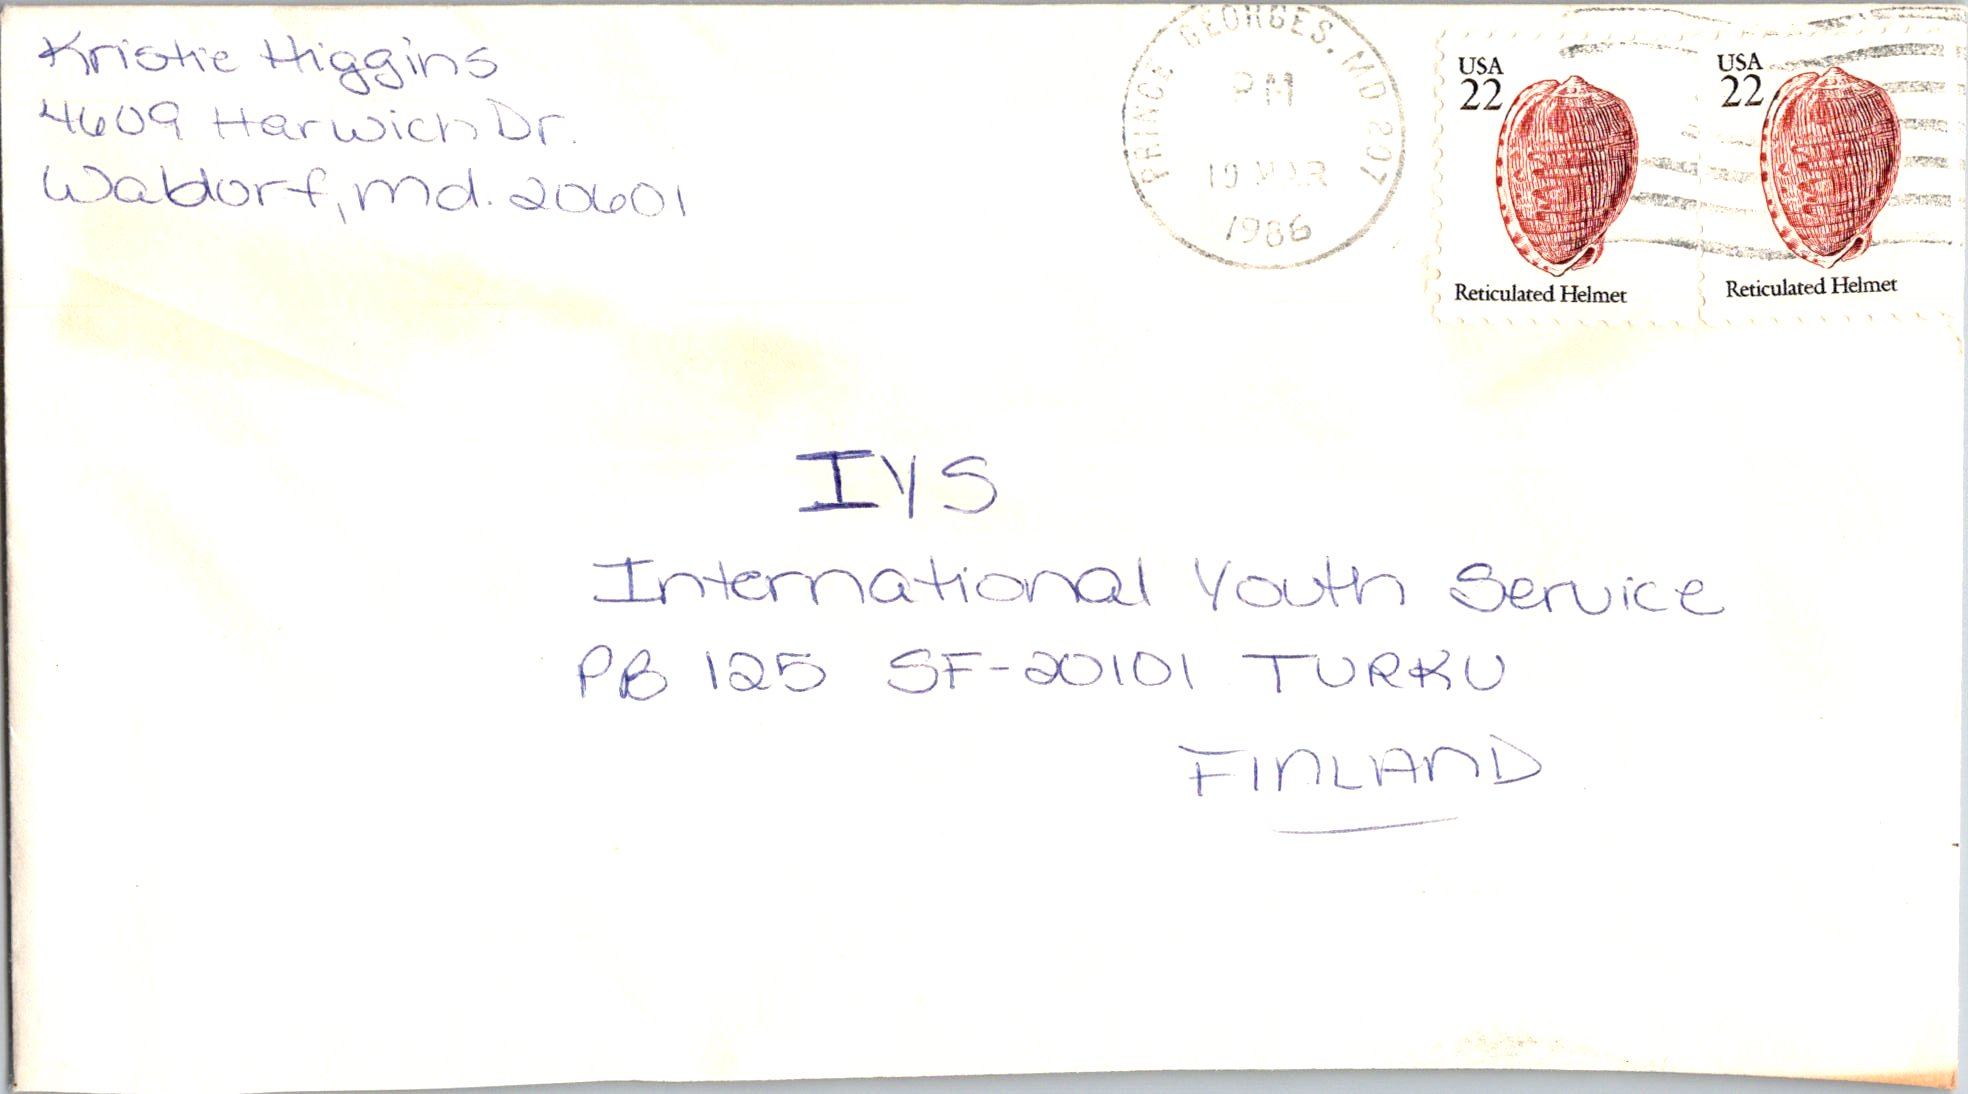 Kristie Higgins
4609 Harwich Dr.
Waldorf, Md. 20601
PRINCE GEORGES, MD 207
PM
19 MAR
1986
USA
22
Reticulated Helmet
USA
22
Reticulated Helmet
IYS
International Youth Service
PB 125 SF-20101 TURKU
FINLAND